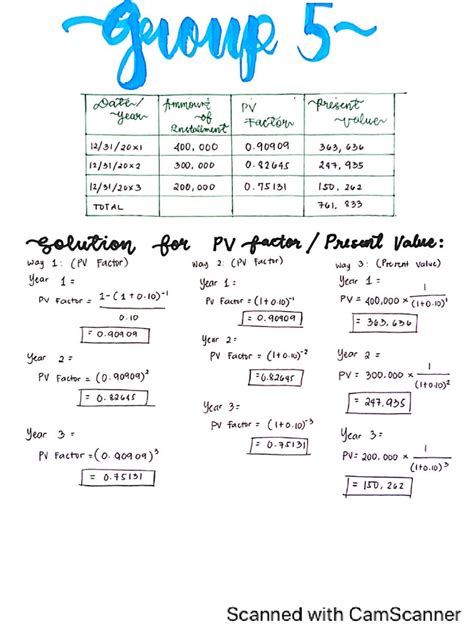 ~Group 5~
Date/ Year | Ammount of Installment | PV Factor | Present Value
12/31/20x1 | 400,000 | 0.90909 | 363,636
12/31/20x2 | 300,000 | 0.82645 | 247,935
12/31/20x3 | 200,000 | 0.75131 | 150,262
TOTAL | 761,833
Solution for PV factor / Present Value:
Way 1: (PV Factor)
Year 1 =
PV Factor = 1-(1+0.10)⁻¹ / 0.10
= 0.90909
Year 2 =
PV Factor = (0.90909)²
= 0.82645
Year 3 =
PV Factor = (0.90909)³
= 0.75131
Way 2: (PV Factor)
Year 1 =
PV Factor = (1+0.10)⁻¹
= 0.90909
Year 2 =
PV Factor = (1+0.10)⁻²
=0.82645
Year 3=
PV Factor = (1+0.10)⁻³
= 0.75131
Way 3: (Present Value)
Year 1 =
PV = 400,000 × 1 / (1+0.10)¹
= 363,636
Year 2 =
PV = 300.000 × 1 / (1+0.10)²
= 247.935
Year 3 =
PV = 200,000 × 1 / (1+0.10)³
= 150,262
Scanned with CamScanner